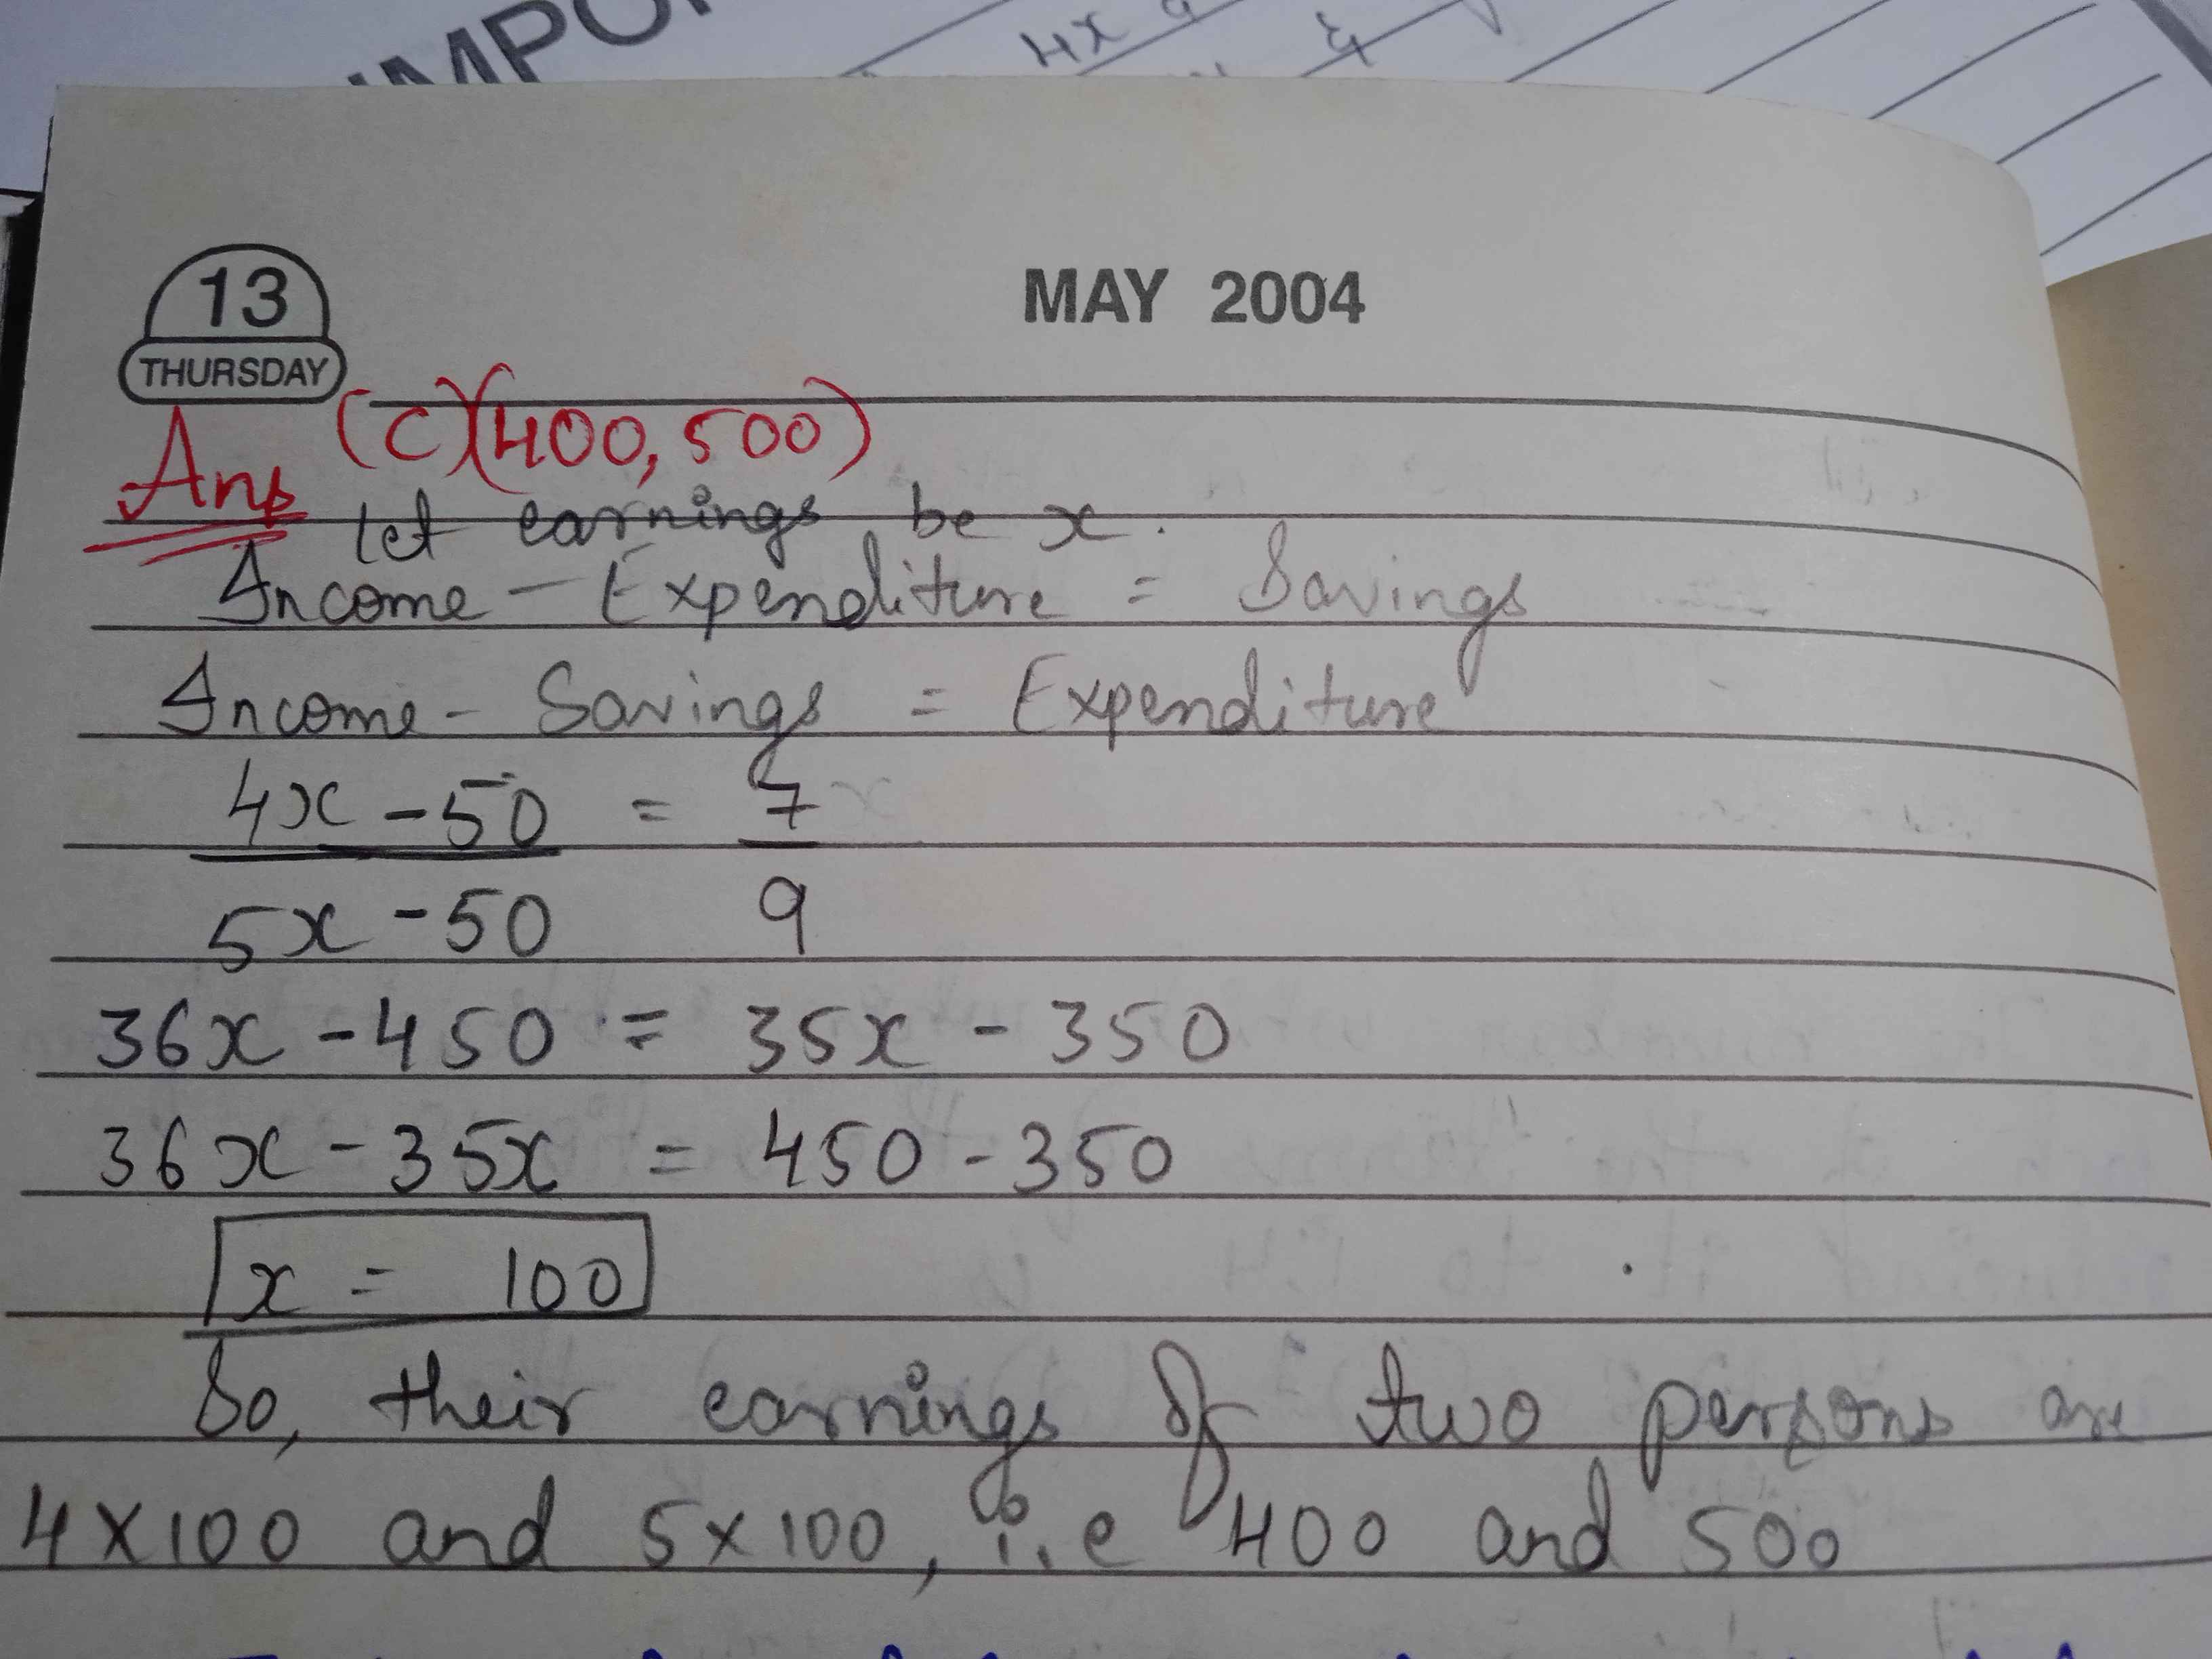 IMPO
4x
13
MAY 2004
THURSDAY
Ans (C)(400,500)
let earnings be x.
Income - Expenditure = Savings
Income - Savings = Expenditure
4x - 50 = 7
5x - 50 9
36x - 450 = 35x - 350
36x - 35x = 450 - 350
x = 100
So, their earnings of two persons are
4 x 100 and 5 x 100, i.e 400 and 500